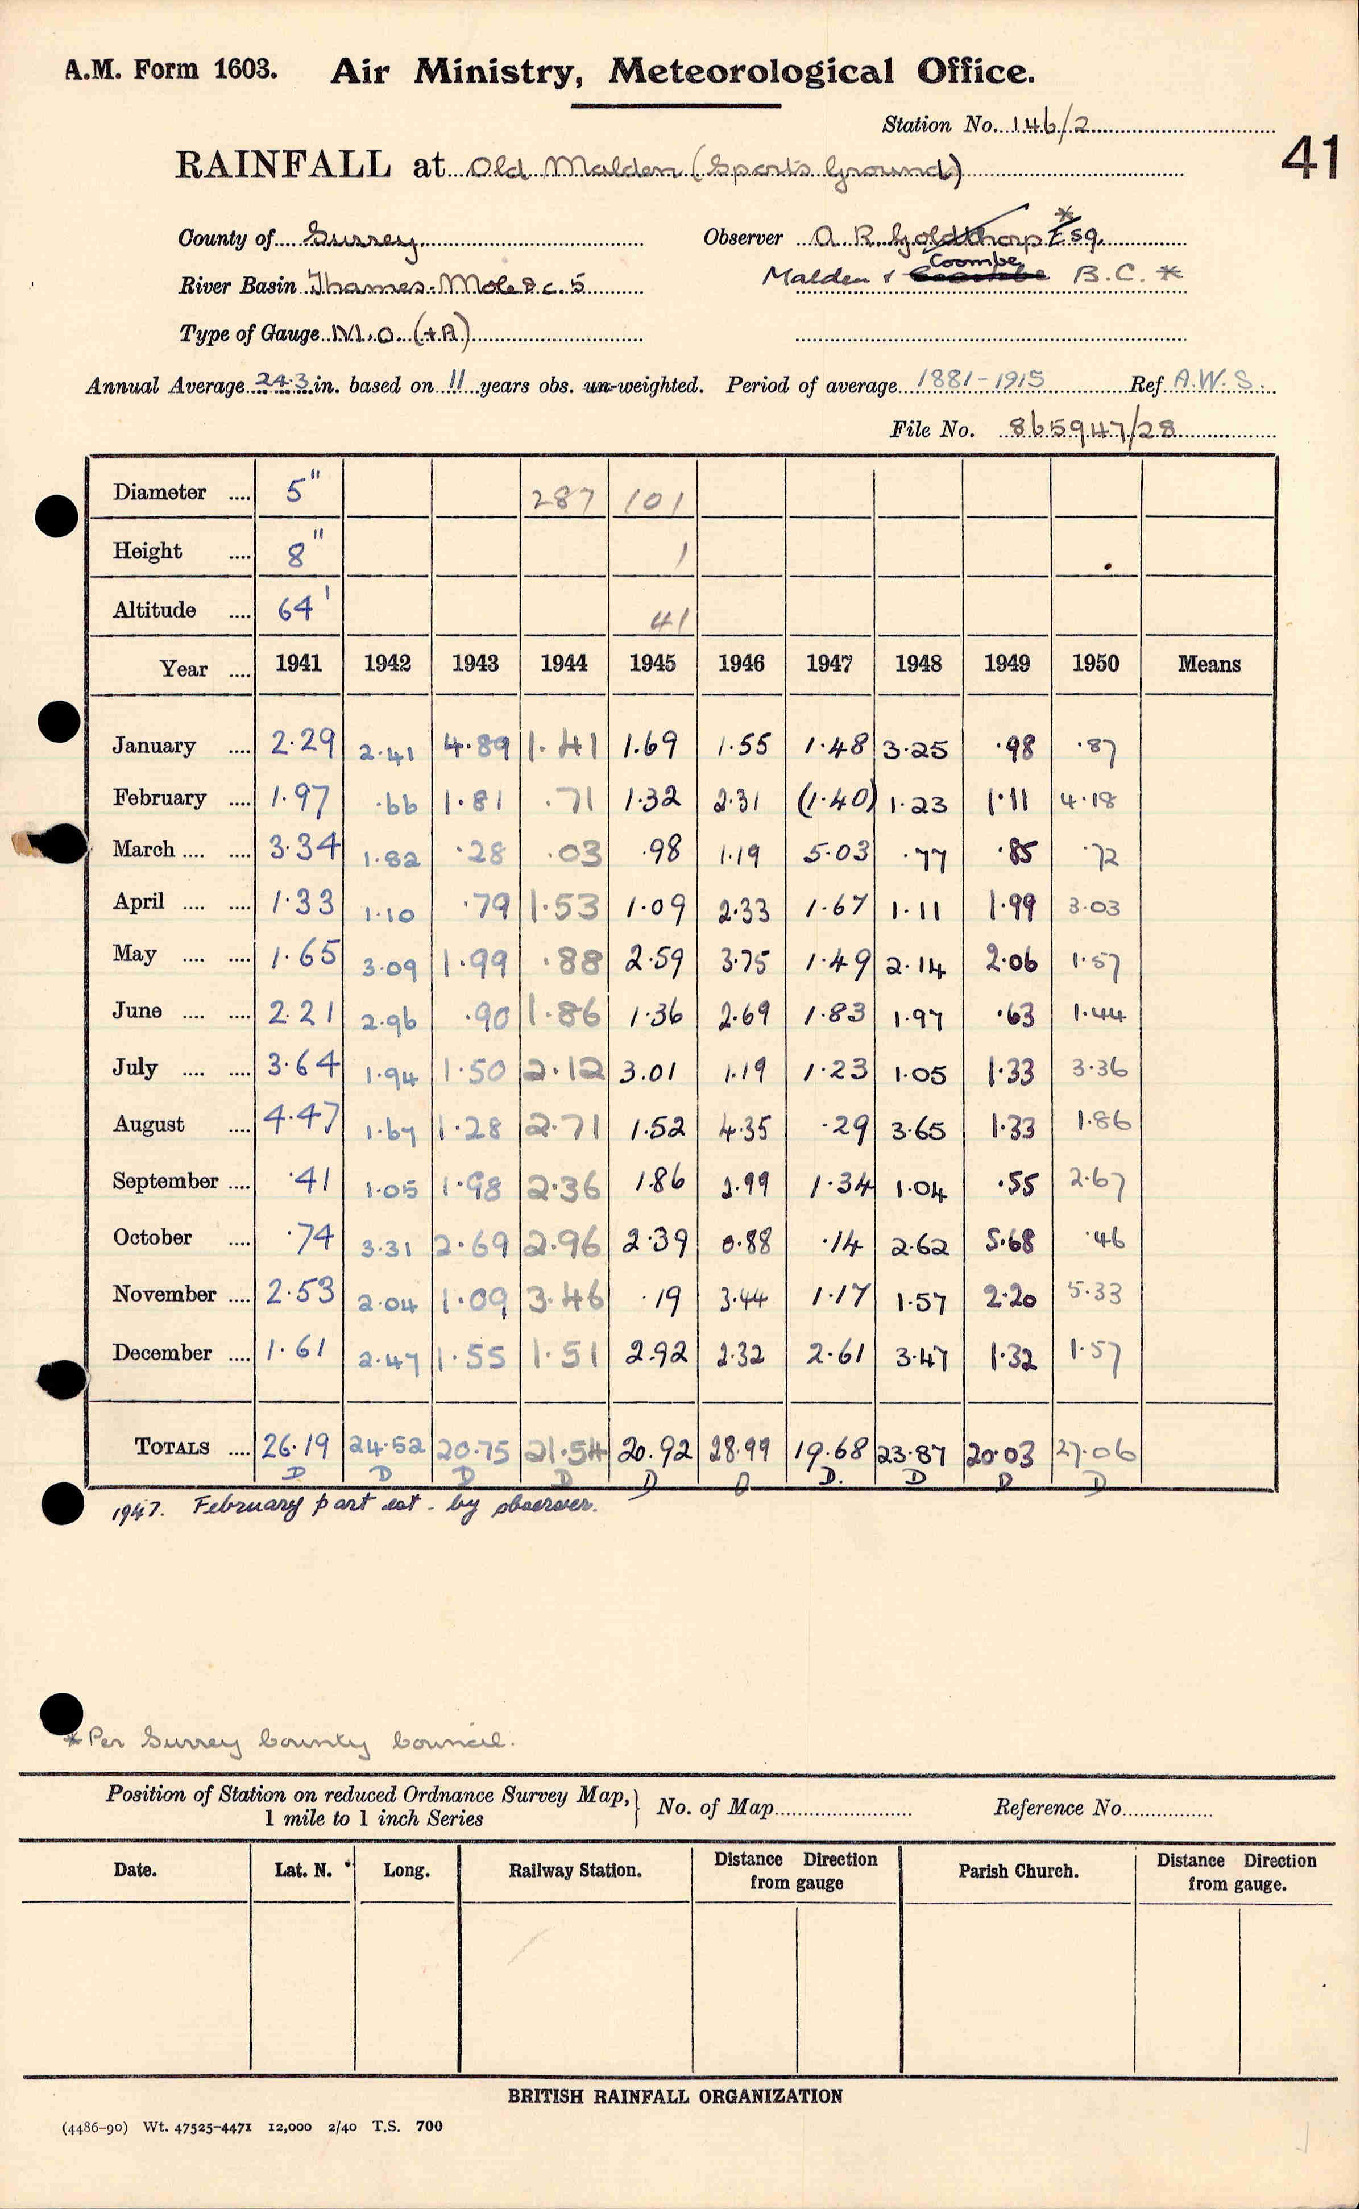 A.M. Form 1603. Air Ministry, Meteorological Office.
Station No. 146/2
41
RAINFALL at Old Malden (Sports Ground)
County of Surrey Observer A. R. Goldthorp Esq. *
Coombe
River Basin Thames. Mole &c. 5 Malden & Coombe B.C. *
Type of Gauge M.O. (+A)
Annual Average 24.3 in. based on 11 years obs. un-weighted. Period of average 1881-1915 Ref. A.W.S.
File No. 865947/28
Diameter .... 5" 287 101
Height .... 8" 1
Altitude .... 64' 41
Year .... 1941 1942 1943 1944 1945 1946 1947 1948 1949 1950 Means
January .... 2.29 2.41 4.89 1.41 1.69 1.55 1.48 3.25 .98 .87
February .... 1.97 .66 1.81 .71 1.32 2.31 (1.40) 1.23 1.11 4.18
March .... .... 3.34 1.82 .28 .03 .98 1.19 5.03 .77 .85 .72
April .... .... 1.33 1.10 .79 1.53 1.09 2.33 1.67 1.11 1.99 3.03
May .... .... 1.65 3.09 1.99 .88 2.59 3.75 1.49 2.14 2.06 1.57
June .... .... 2.21 2.96 .90 1.86 1.36 2.69 1.83 1.97 .63 1.44
July .... .... 3.64 1.94 1.50 2.12 3.01 1.19 1.23 1.05 1.33 3.36
August .... 4.47 1.67 1.28 2.71 1.52 4.35 .29 3.65 1.33 1.86
September .... .41 1.05 1.98 2.36 1.86 2.99 1.34 1.04 .55 2.67
October .... .74 3.31 2.69 2.96 2.39 0.88 .14 2.62 5.68 .46
November .... 2.53 2.04 1.09 3.46 .19 3.44 1.17 1.57 2.20 5.33
December .... 1.61 2.47 1.55 1.51 2.92 2.32 2.61 3.47 1.32 1.57
TOTALS .... 26.19 24.52 20.75 21.54 20.92 28.99 19.68 23.87 20.03 27.06
D D D D D D D. D D D
1947. February part est. by observer.
*Per Surrey County Council.
Position of Station on reduced Ordnance Survey Map, 1 mile to 1 inch Series } No. of Map Reference No.
Date. Lat. N. Long. Railway Station. Distance Direction from gauge Parish Church. Distance Direction from gauge.
BRITISH RAINFALL ORGANIZATION
(4486-90) Wt. 47525-4471 12,000 2/40 T.S. 700